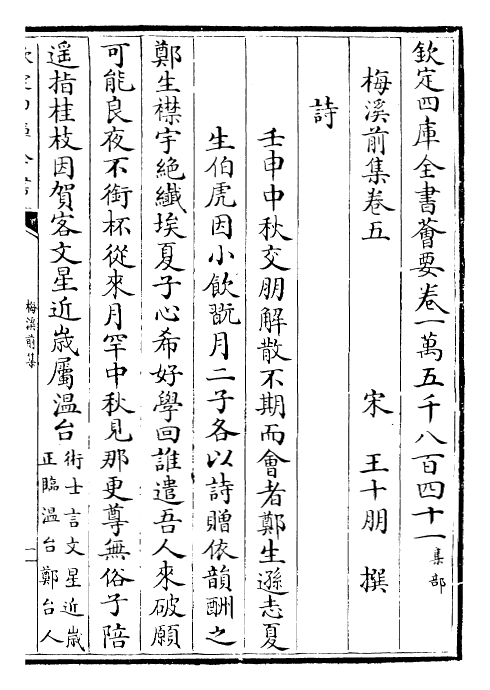 欽定四庫全書薈要卷一萬五千八百四十一集部
梅溪前集卷五
宋 王十朋 撰
詩
壬申中秋交朋解散不期而會者鄭生遜志夏
生伯虎因小飲翫月二子各以詩贈依韻酬之
鄭生襟宇絶纎埃夏子心希好學回誰遣吾人來破願
可能良夜不銜杯從來月罕中秋見那更尊無俗子陪
遥指桂枝因賀客文星近嵗屬温台術士言文星近嵗
正臨温台鄭台人
梅溪前集
一